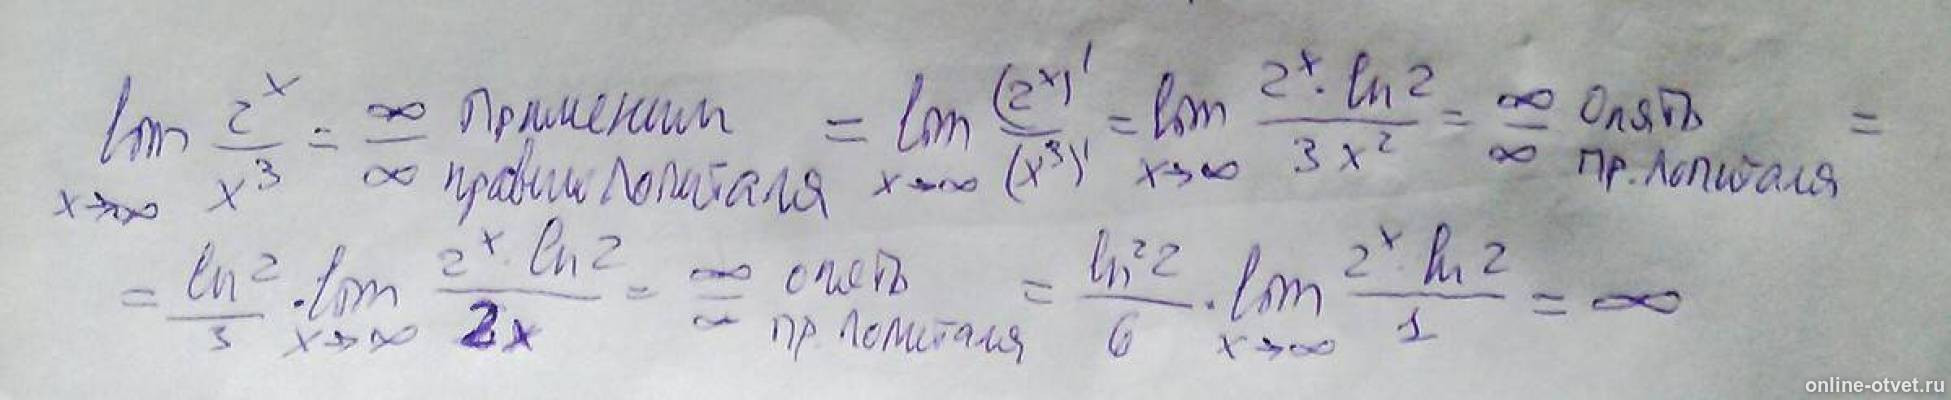 lim 2^x / x^3 = ∞/∞ Применим правило Лопиталя = lim (2^x)' / (x^3)' = lim 2^x · ln 2 / 3x^2 = ∞/∞ Опять пр. Лопиталя =
x→∞ x→∞ x→∞
= ln 2 / 3 · lim 2^x · ln 2 / 2x = ∞/∞ опять пр. Лопиталя = ln^2 2 / 6 · lim 2^x · ln 2 / 1 = ∞
x→∞ x→∞
online-otvet.ru